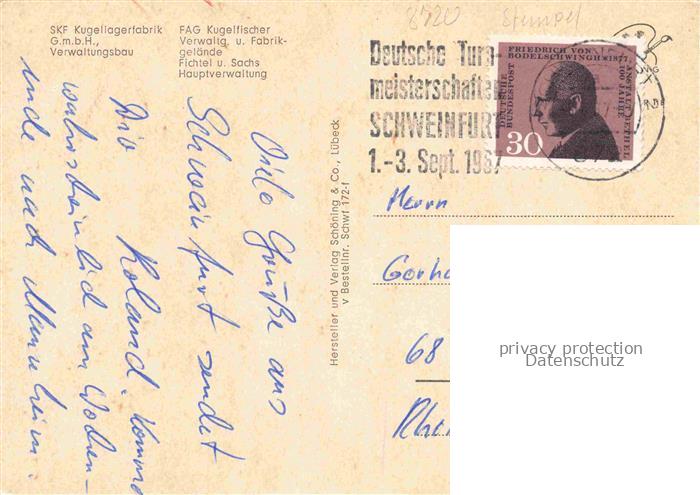 SKF Kugellagerfabrik
G.m.b.H.,
Verwaltungsbau
FAG Kugelfischer
Verwaltg. u. Fabrik-
gelände
Fichtel u. Sachs
Hauptverwaltung
8720 Stempel
Deutsche Turn-
meisterschaften
SCHWEINFURT
1.-3. Sept. 1967
FRIEDRICH VON
BODELSCHWINGH * 1877
ANSTALT BETHEL
100 JAHRE
DEUTSCHE
BUNDESPOST
30
Viele Grüße aus
Schweinfurt sendet
Dir Roland. Komme
wahrscheinlich am Wochen-
ende nach Mannheim.
Hersteller und Verlag Schöning & Co., Lübeck
v Bestellnr. Schwf 172-f
Herrn
Gerha
68
Rhei
privacy protection
Datenschutz